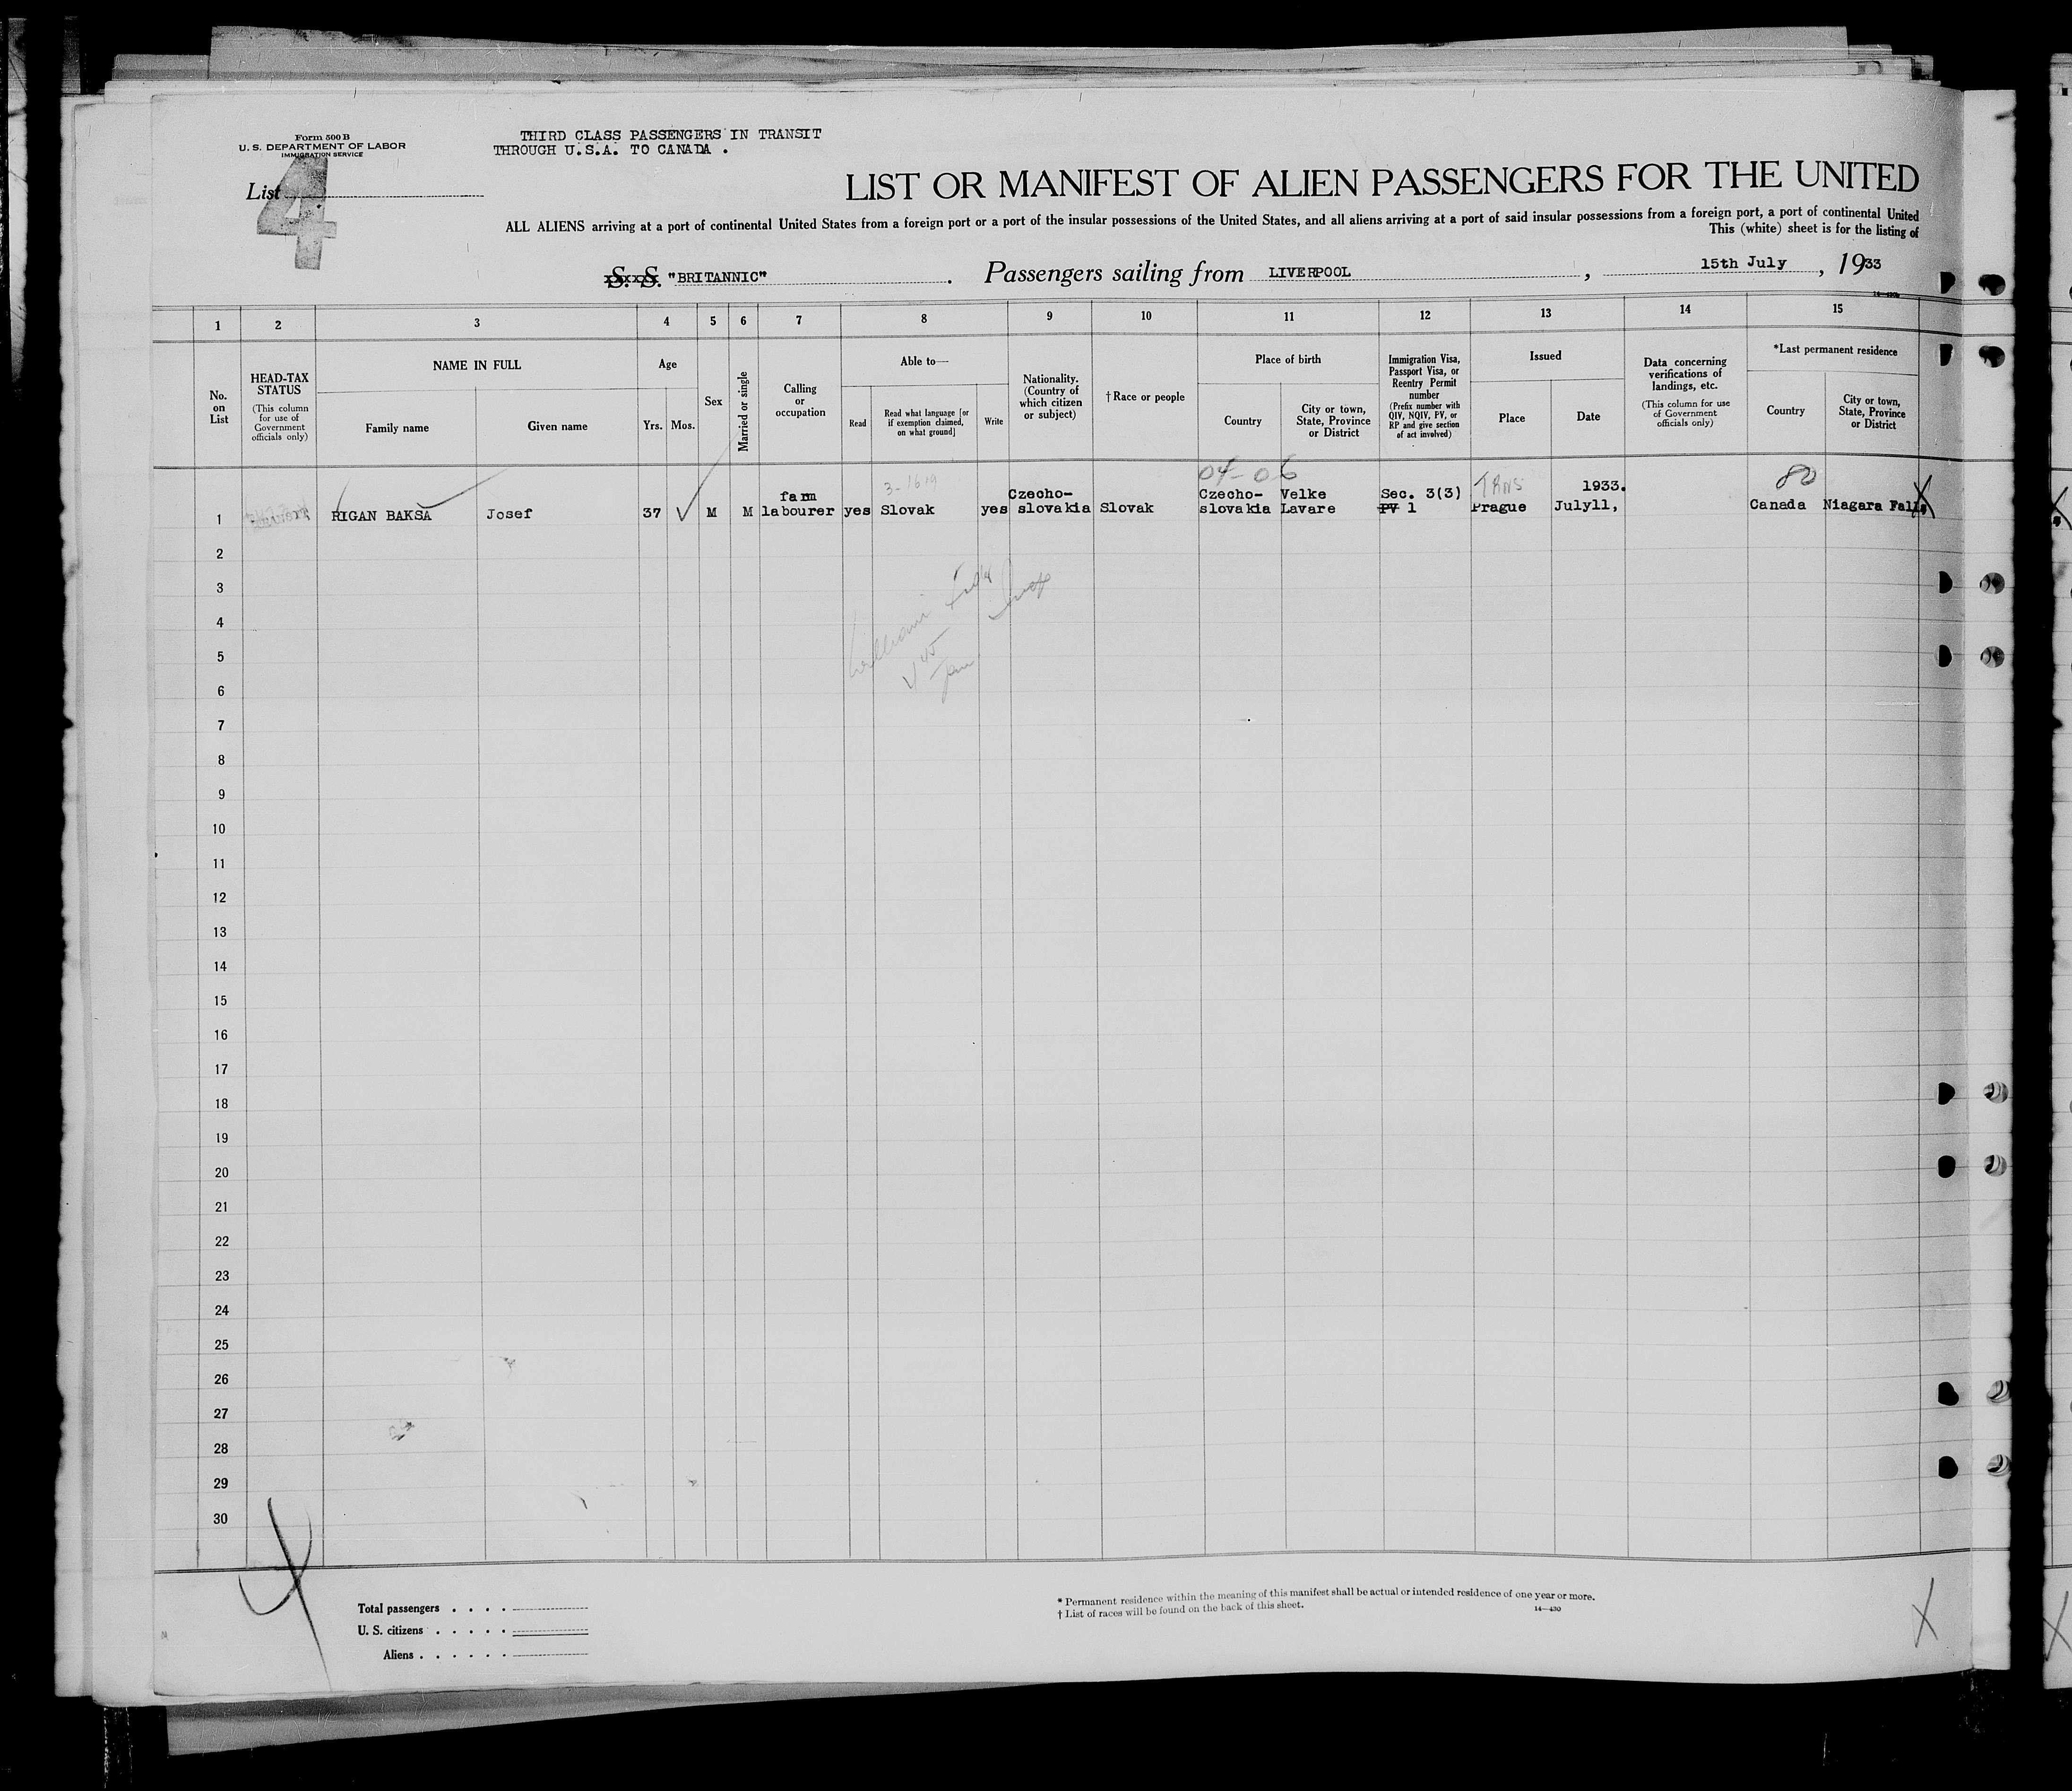 Form 500 B
U. S. DEPARTMENT OF LABOR
IMMIGRATION SERVICE
THIRD CLASS PASSENGERS IN TRANSIT
THROUGH U.S.A. TO CANADA .
List
4
LIST OR MANIFEST OF ALIEN PASSENGERS FOR THE UNITED
ALL ALIENS arriving at a port of continental United States from a foreign port or a port of the insular possessions of the United States, and all aliens arriving at a port of said insular possessions from a foreign port, a port of continental United
This (white) sheet is for the listing of
S. S. "BRITANNIC" . Passengers sailing from LIVERPOOL , 15th July , 1933
1 2 3 4 5 6 7 8 9 10 11 12 13 14 15
No. on List
HEAD-TAX STATUS
(This column for use of Government officials only)
NAME IN FULL
Family name
Given name
Age
Yrs. Mos.
Sex
Married or single
Calling or occupation
Able to—
Read
Read what language [or if exemption claimed, on what ground]
Write
Nationality. (Country of which citizen or subject)
† Race or people
Place of birth
Country
City or town, State, Province or District
Immigration Visa, Passport Visa, or Reentry Permit number
(Prefix number with QIV, NQIV, PV, or RP and give section of act involved)
Issued
Place
Date
Data concerning verifications of landings, etc.
(This column for use of Government officials only)
*Last permanent residence
Country
City or town, State, Province or District
04-06
80
3-1619
TRNS
1 RIGAN BAKSA Josef 37 M M farm labourer yes Slovak yes Czecho-slovakia Slovak Czecho-slovakia Velke Lavare Sec. 3(3) PV 1 Prague July11, 1933. Canada Niagara Falls
2
3
4
5
6
7
8
9
10
11
12
13
14
15
16
17
18
19
20
21
22
23
24
25
26
27
28
29
30
Total passengers . . . .
U. S. citizens . . . . .
Aliens . . . . . .
* Permanent residence within the meaning of this manifest shall be actual or intended residence of one year or more.
† List of races will be found on the back of this sheet.
14—430